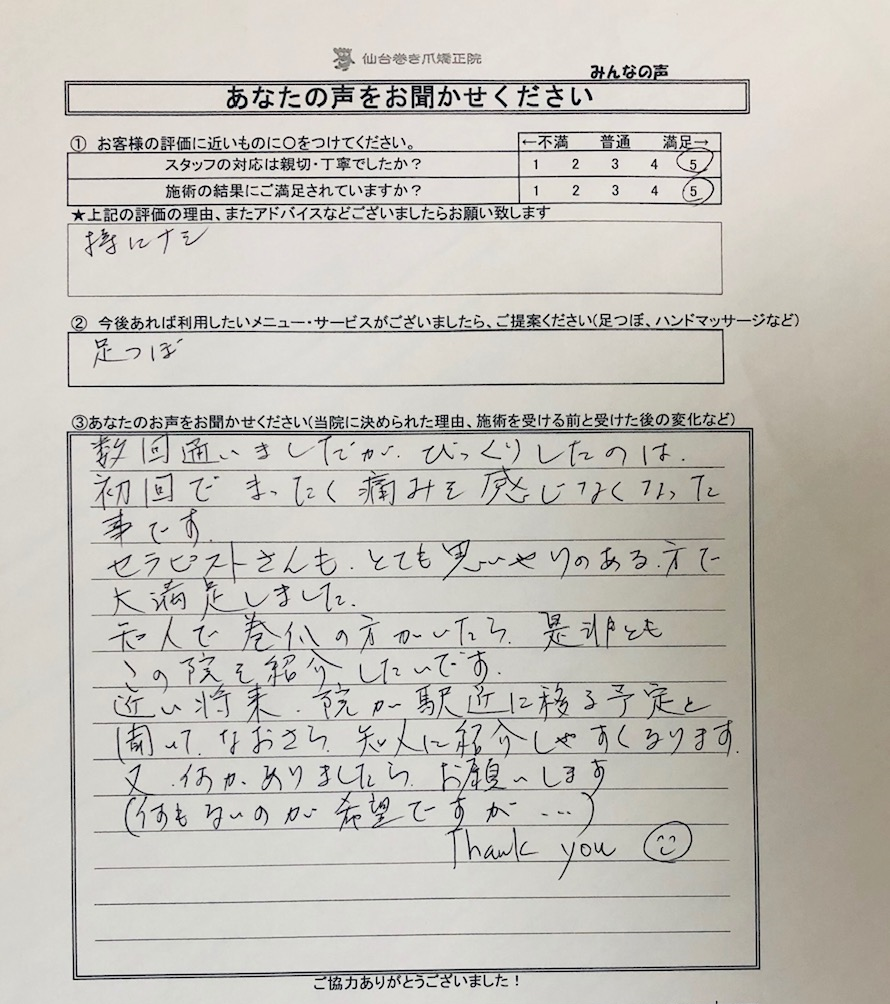 仙台巻き爪矯正院
みんなの声
あなたの声をお聞かせください
① お客様の評価に近いものに〇をつけてください。 ←不満 普通 満足→
スタッフの対応は親切・丁寧でしたか？ 1 2 3 4 5
施術の結果にご満足されていますか？ 1 2 3 4 5
★上記の評価の理由、またアドバイスなどございましたらお願い致します
特にナシ
② 今後あれば利用したいメニュー・サービスがございましたら、ご提案ください(足つぼ、ハンドマッサージなど)
足つぼ
③あなたのお声をお聞かせください(当院に決められた理由、施術を受ける前と受けた後の変化など)
数回通いましたが、びっくりしたのは、
初回でまったく痛みを感じなくなった
事です。
セラピストさんも、とても思いやりのある方で
大満足しました。
知人で巻爪の方がいたら、是非とも
この院を紹介したいです。
近い将来、院が駅近に移る予定と
聞いて、なおさら、知人に紹介しやすくなります。
又、何かありましたら、お願いします
(何もないのが希望ですが…)
Thank you
ご協力ありがとうございました！